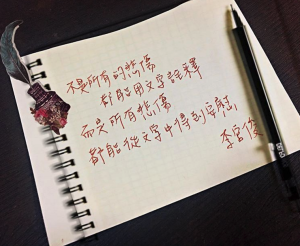 不是所有的悲傷
都能用文字詮釋
而是所有悲傷
都能從文字中得到安慰
李官俊